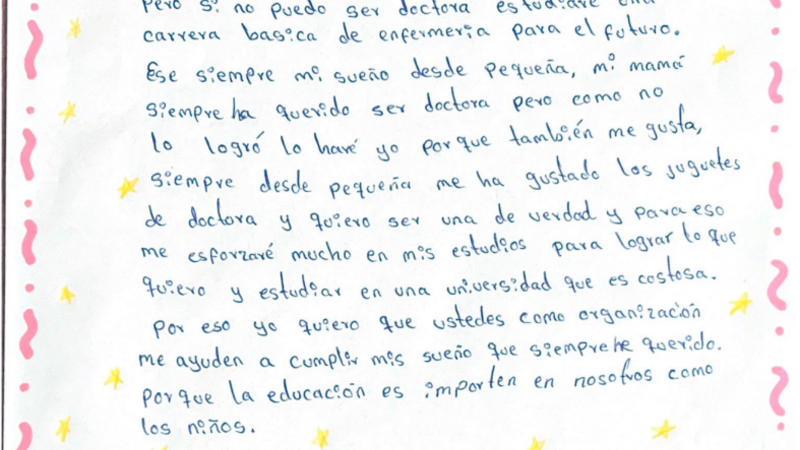 Pero si no puedo ser doctora estudiare una
carrera basica de enfermeria para el futuro.
Ese siempre mi sueño desde pequeña, mi mamá
siempre ha querido ser doctora pero como no
lo logró lo haré yo porque también me gusta,
siempre desde pequeña me ha gustado los juguetes
de doctora y quiero ser una de verdad y para eso
me esforzaré mucho en mis estudios para lograr lo que
quiero y estudiar en una universidad que es costosa.
Por eso yo quiero que ustedes como organización
me ayuden a cumplir mis sueño que siempre he querido.
Porque la educación es importen en nosotros como
los niños.